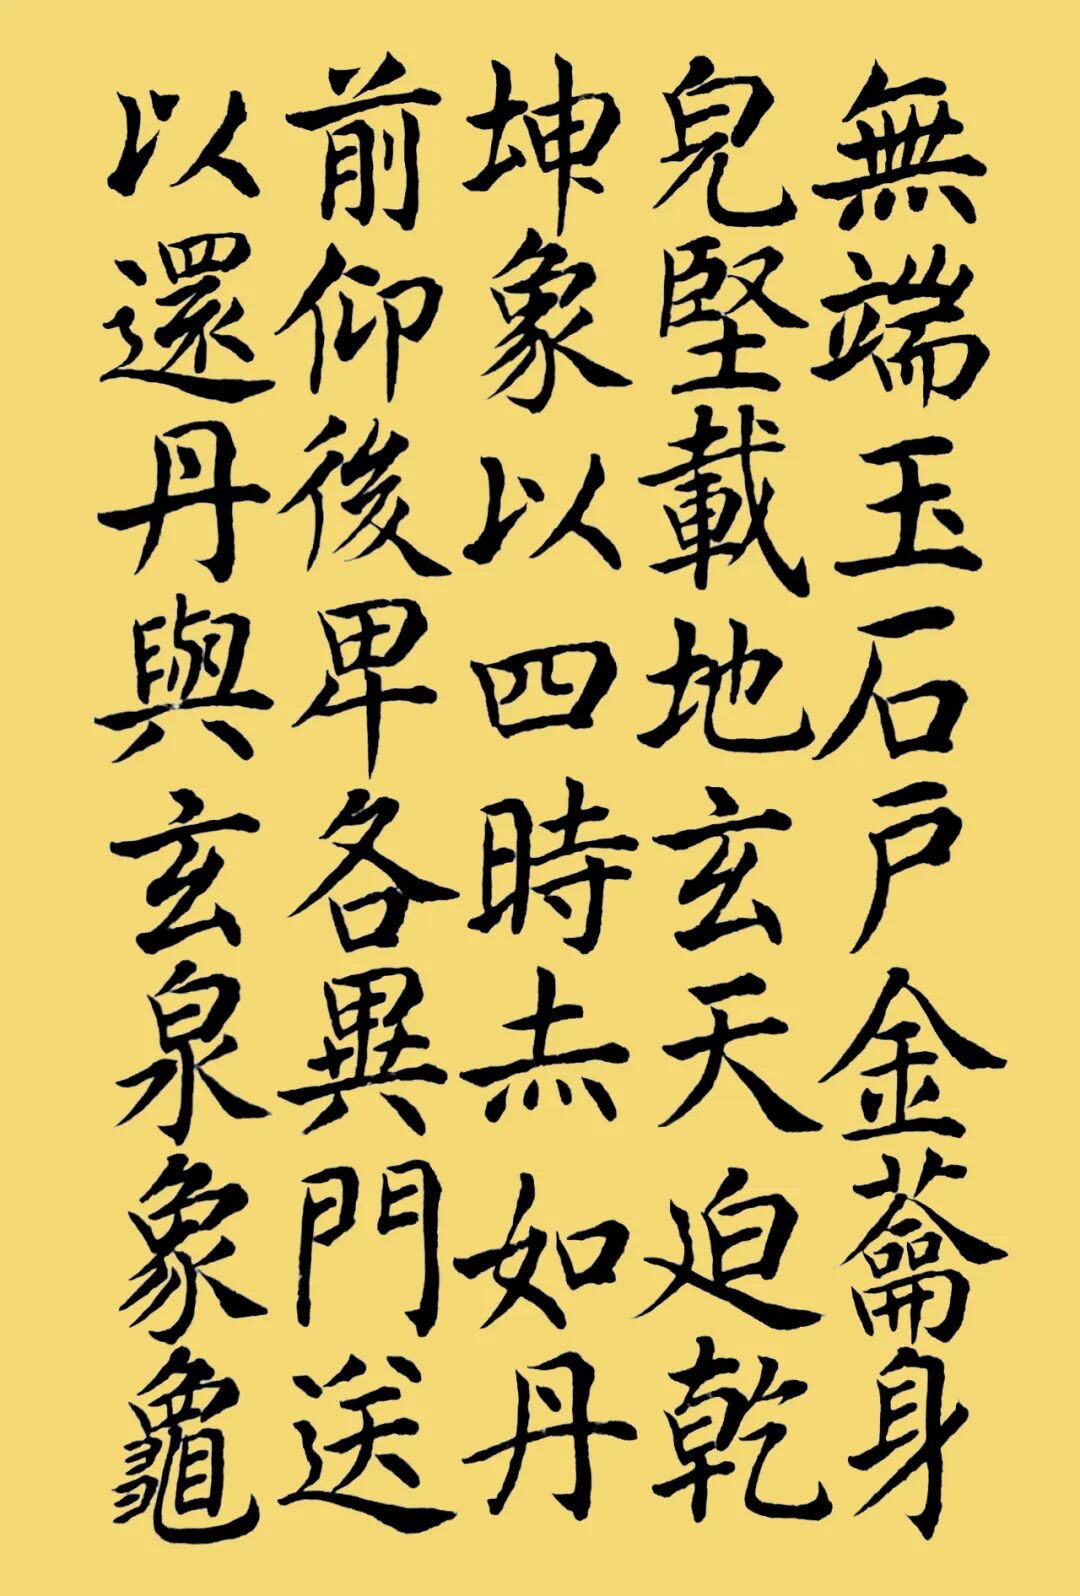 無端玉石戶金蘥身
皃堅載地玄天迫乾
坤象以四時赤如丹
前仰後卑各異門送
以還丹與玄泉象龜